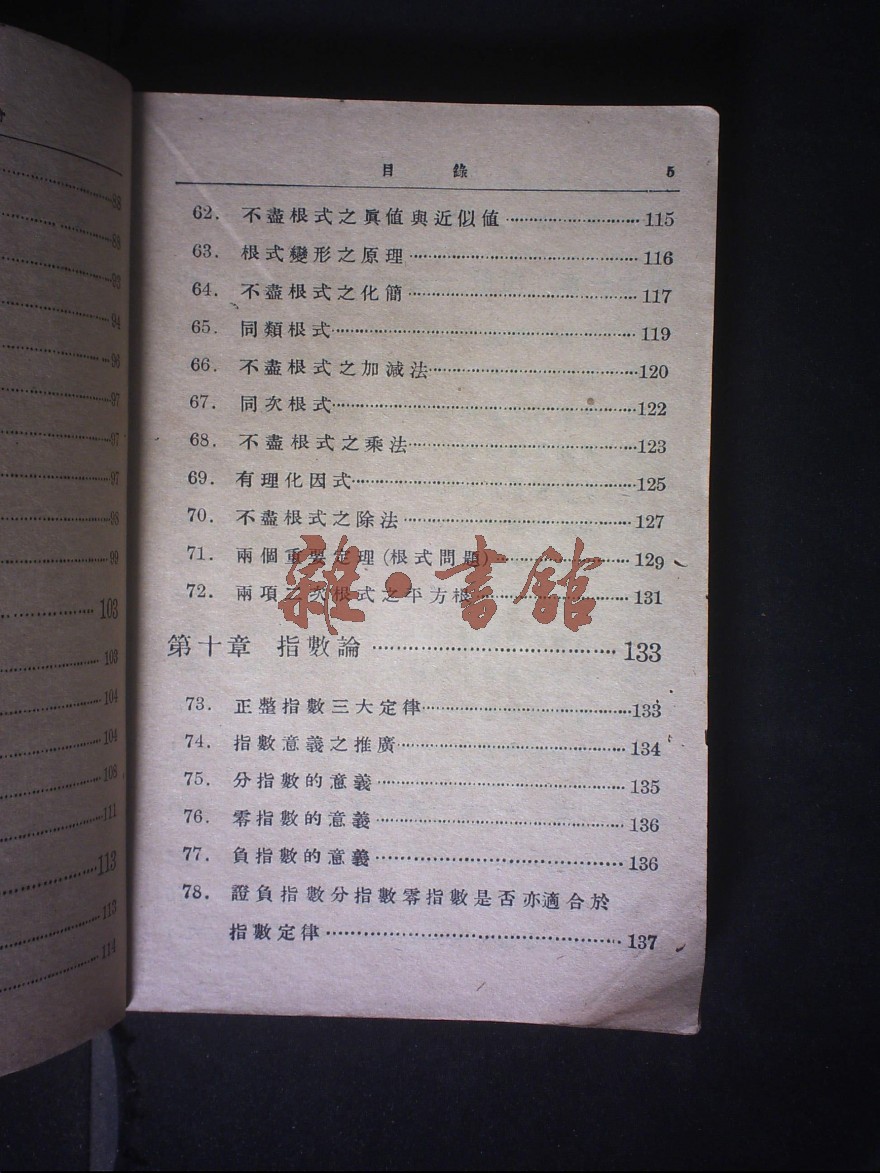 88
89
93
94
96
97
97
97
98
99
103
103
104
104
108
111
113
113
114
目 錄 5
62. 不盡根式之眞値與近似値……115
63. 根式變形之原理……116
64. 不盡根式之化簡……117
65. 同類根式……119
66. 不盡根式之加減法……120
67. 同次根式……122
68. 不盡根式之乘法……123
69. 有理化因式……125
70. 不盡根式之除法……127
71. 兩個重要定理(根式問題)……129
72. 兩項二次根式之平方根……131
雜·書舘
第十章 指數論……133
73. 正整指數三大定律……133
74. 指數意義之推廣……134
75. 分指數的意義……135
76. 零指數的意義……136
77. 負指數的意義……136
78. 證負指數分指數零指數是否亦適合於
指數定律……137